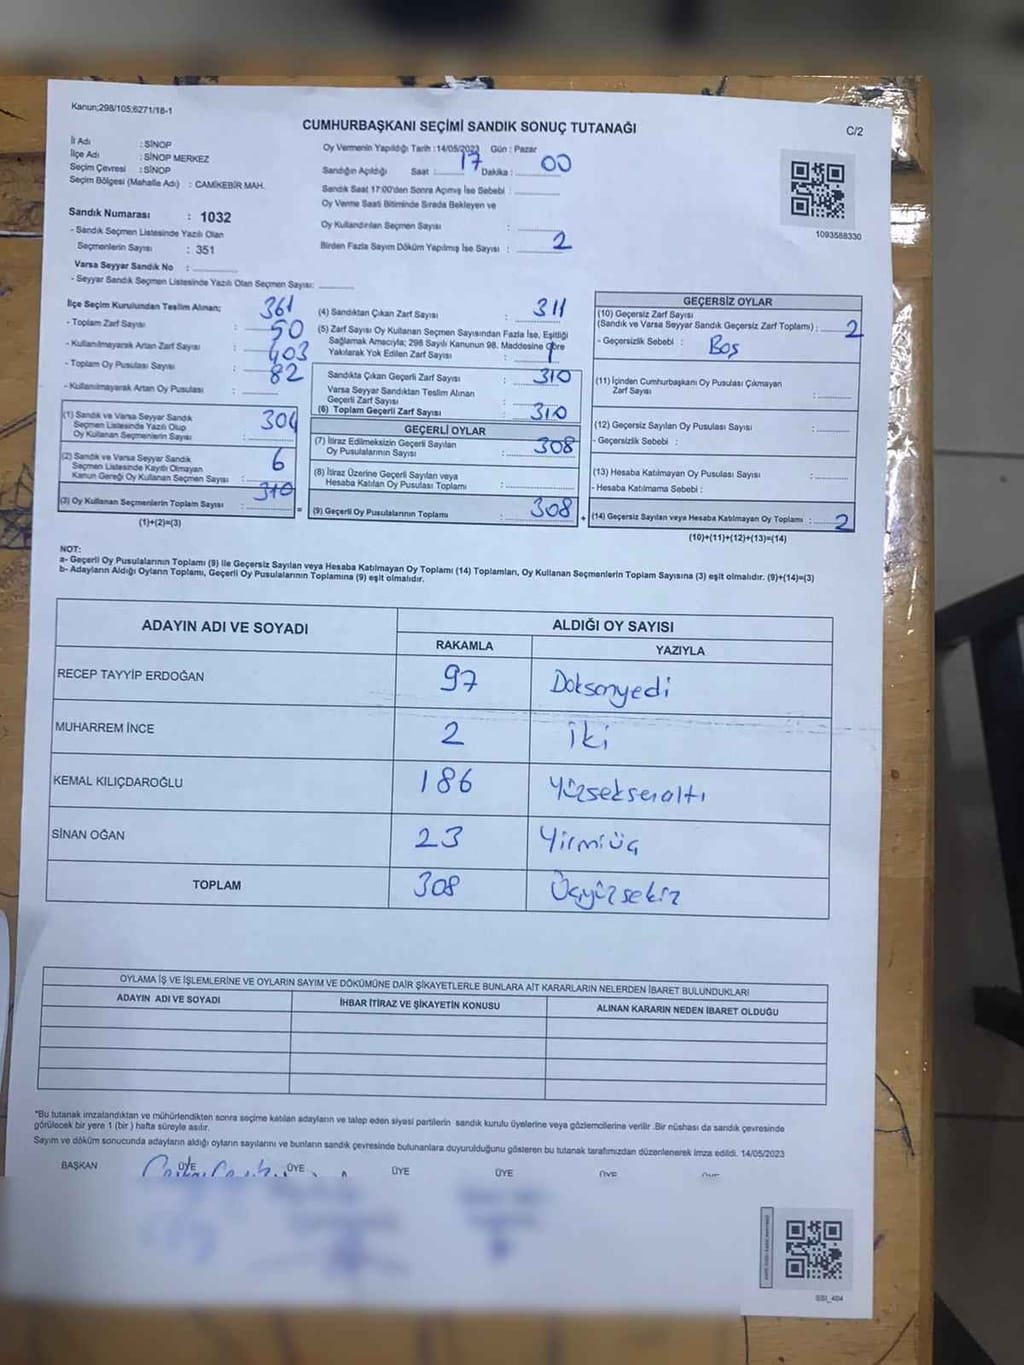 Kanun;298/105;6271/18-1
CUMHURBAŞKANI SEÇİMİ SANDIK SONUÇ TUTANAĞI
C/2
İl Adı : SİNOP
İlçe Adı : SİNOP MERKEZ
Seçim Çevresi : SİNOP
Seçim Bölgesi (Mahalle Adı) : CAMİKEBİR MAH.
Sandık Numarası : 1032
- Sandık Seçmen Listesinde Yazılı Olan
Seçmenlerin Sayısı : 351
Varsa Seyyar Sandık No :
- Seyyar Sandık Seçmen Listesinde Yazılı Olan Seçmen Sayısı:
Oy Vermenin Yapıldığı Tarih :14/05/2023 Gün : Pazar
Sandığın Açıldığı Saat : 17 Dakika : 00
Sandık Saat 17:00'den Sonra Açımış İse Sebebi :
Oy Verme Saati Bitiminde Sırada Bekleyen ve
Oy Kullandırılan Seçmen Sayısı :
Birden Fazla Sayım Döküm Yapılmış İse Sayısı : 2
1093588330
İlçe Seçim Kurulundan Teslim Alınan;
- Toplam Zarf Sayısı : 361
- Kullanılmayarak Artan Zarf Sayısı : 50
- Toplam Oy Pusulası Sayısı : 403
- Kullanılmayarak Artan Oy Pusulası : 82
(1) Sandık ve Varsa Seyyar Sandık
Seçmen Listesinde Yazılı Olup
Oy Kullanan Seçmenlerin Sayısı : 304
(2) Sandık ve Varsa Seyyar Sandık
Seçmen Listesinde Kayıtlı Olmayan
Kanun Gereği Oy Kullanan Seçmen Sayısı : 6
(3) Oy Kullanan Seçmenlerin Toplam Sayısı : 310
(1)+(2)=(3)
(4) Sandıktan Çıkan Zarf Sayısı : 311
(5) Zarf Sayısı Oy Kullanan Seçmen Sayısından Fazla İse, Eşitliği
Sağlamak Amacıyla; 298 Sayılı Kanunun 98. Maddesine Göre
Yakılarak Yok Edilen Zarf Sayısı : 1
Sandıkta Çıkan Geçerli Zarf Sayısı : 310
Varsa Seyyar Sandıktan Teslim Alınan
Geçerli Zarf Sayısı :
(6) Toplam Geçerli Zarf Sayısı : 310
GEÇERLİ OYLAR
(7) İtiraz Edilmeksizin Geçerli Sayılan
Oy Pusulalarının Sayısı : 308
(8) İtiraz Üzerine Geçerli Sayılan veya
Hesaba Katılan Oy Pusulası Toplamı :
= (9) Geçerli Oy Pusulalarının Toplamı : 308 +
GEÇERSİZ OYLAR
(10) Geçersiz Zarf Sayısı
(Sandık ve Varsa Seyyar Sandık Geçersiz Zarf Toplamı) : 2
- Geçersizlik Sebebi : Boş
(11) İçinden Cumhurbaşkanı Oy Pusulası Çıkmayan
Zarf Sayısı :
(12) Geçersiz Sayılan Oy Pusulası Sayısı :
- Geçersizlik Sebebi :
(13) Hesaba Katılmayan Oy Pusulası Sayısı :
- Hesaba Katılmama Sebebi :
(14) Geçersiz Sayılan veya Hesaba Katılmayan Oy Toplamı : 2
(10)+(11)+(12)+(13)=(14)
NOT:
a- Geçerli Oy Pusulalarının Toplamı (9) ile Geçersiz Sayılan veya Hesaba Katılmayan Oy Toplamı (14) Toplamları, Oy Kullanan Seçmenlerin Toplam Sayısına (3) eşit olmalıdır. (9)+(14)=(3)
b- Adayların Aldığı Oyların Toplamı, Geçerli Oy Pusulalarının Toplamına (9) eşit olmalıdır.
ADAYIN ADI VE SOYADI ALDIĞI OY SAYISI
RAKAMLA YAZIYLA
RECEP TAYYİP ERDOĞAN 97 Doksanyedi
MUHARREM İNCE 2 iki
KEMAL KILIÇDAROĞLU 186 Yüzseksenaltı
SİNAN OĞAN 23 Yirmiüç
TOPLAM 308 Üçyüzsekiz
OYLAMA İŞ VE İŞLEMLERİNE VE OYLARIN SAYIM VE DÖKÜMÜNE DAİR ŞİKAYETLERLE BUNLARA AİT KARARLARIN NELERDEN İBARET BULUNDUKLARI
ADAYIN ADI VE SOYADI İHBAR İTİRAZ VE ŞİKAYETİN KONUSU ALINAN KARARIN NEDEN İBARET OLDUĞU
*Bu tutanak imzalandıktan ve mühürlendikten sonra seçime katılan adayların ve talep eden siyasi partilerin sandık kurulu üyelerine veya gözlemcilerine verilir .Bir nüshası da sandık çevresinde
görülecek bir yere 1 (bir ) hafta süreyle asılır.
Sayım ve döküm sonucunda adayların aldığı oyların sayılarını ve bunların sandık çevresinde bulunanlara duyurulduğunu gösteren bu tutanak tarafımızdan düzenlenerek imza edildi. 14/05/2023
BAŞKAN ÜYE ÜYE ÜYE ÜYE ÜYE ÜYE